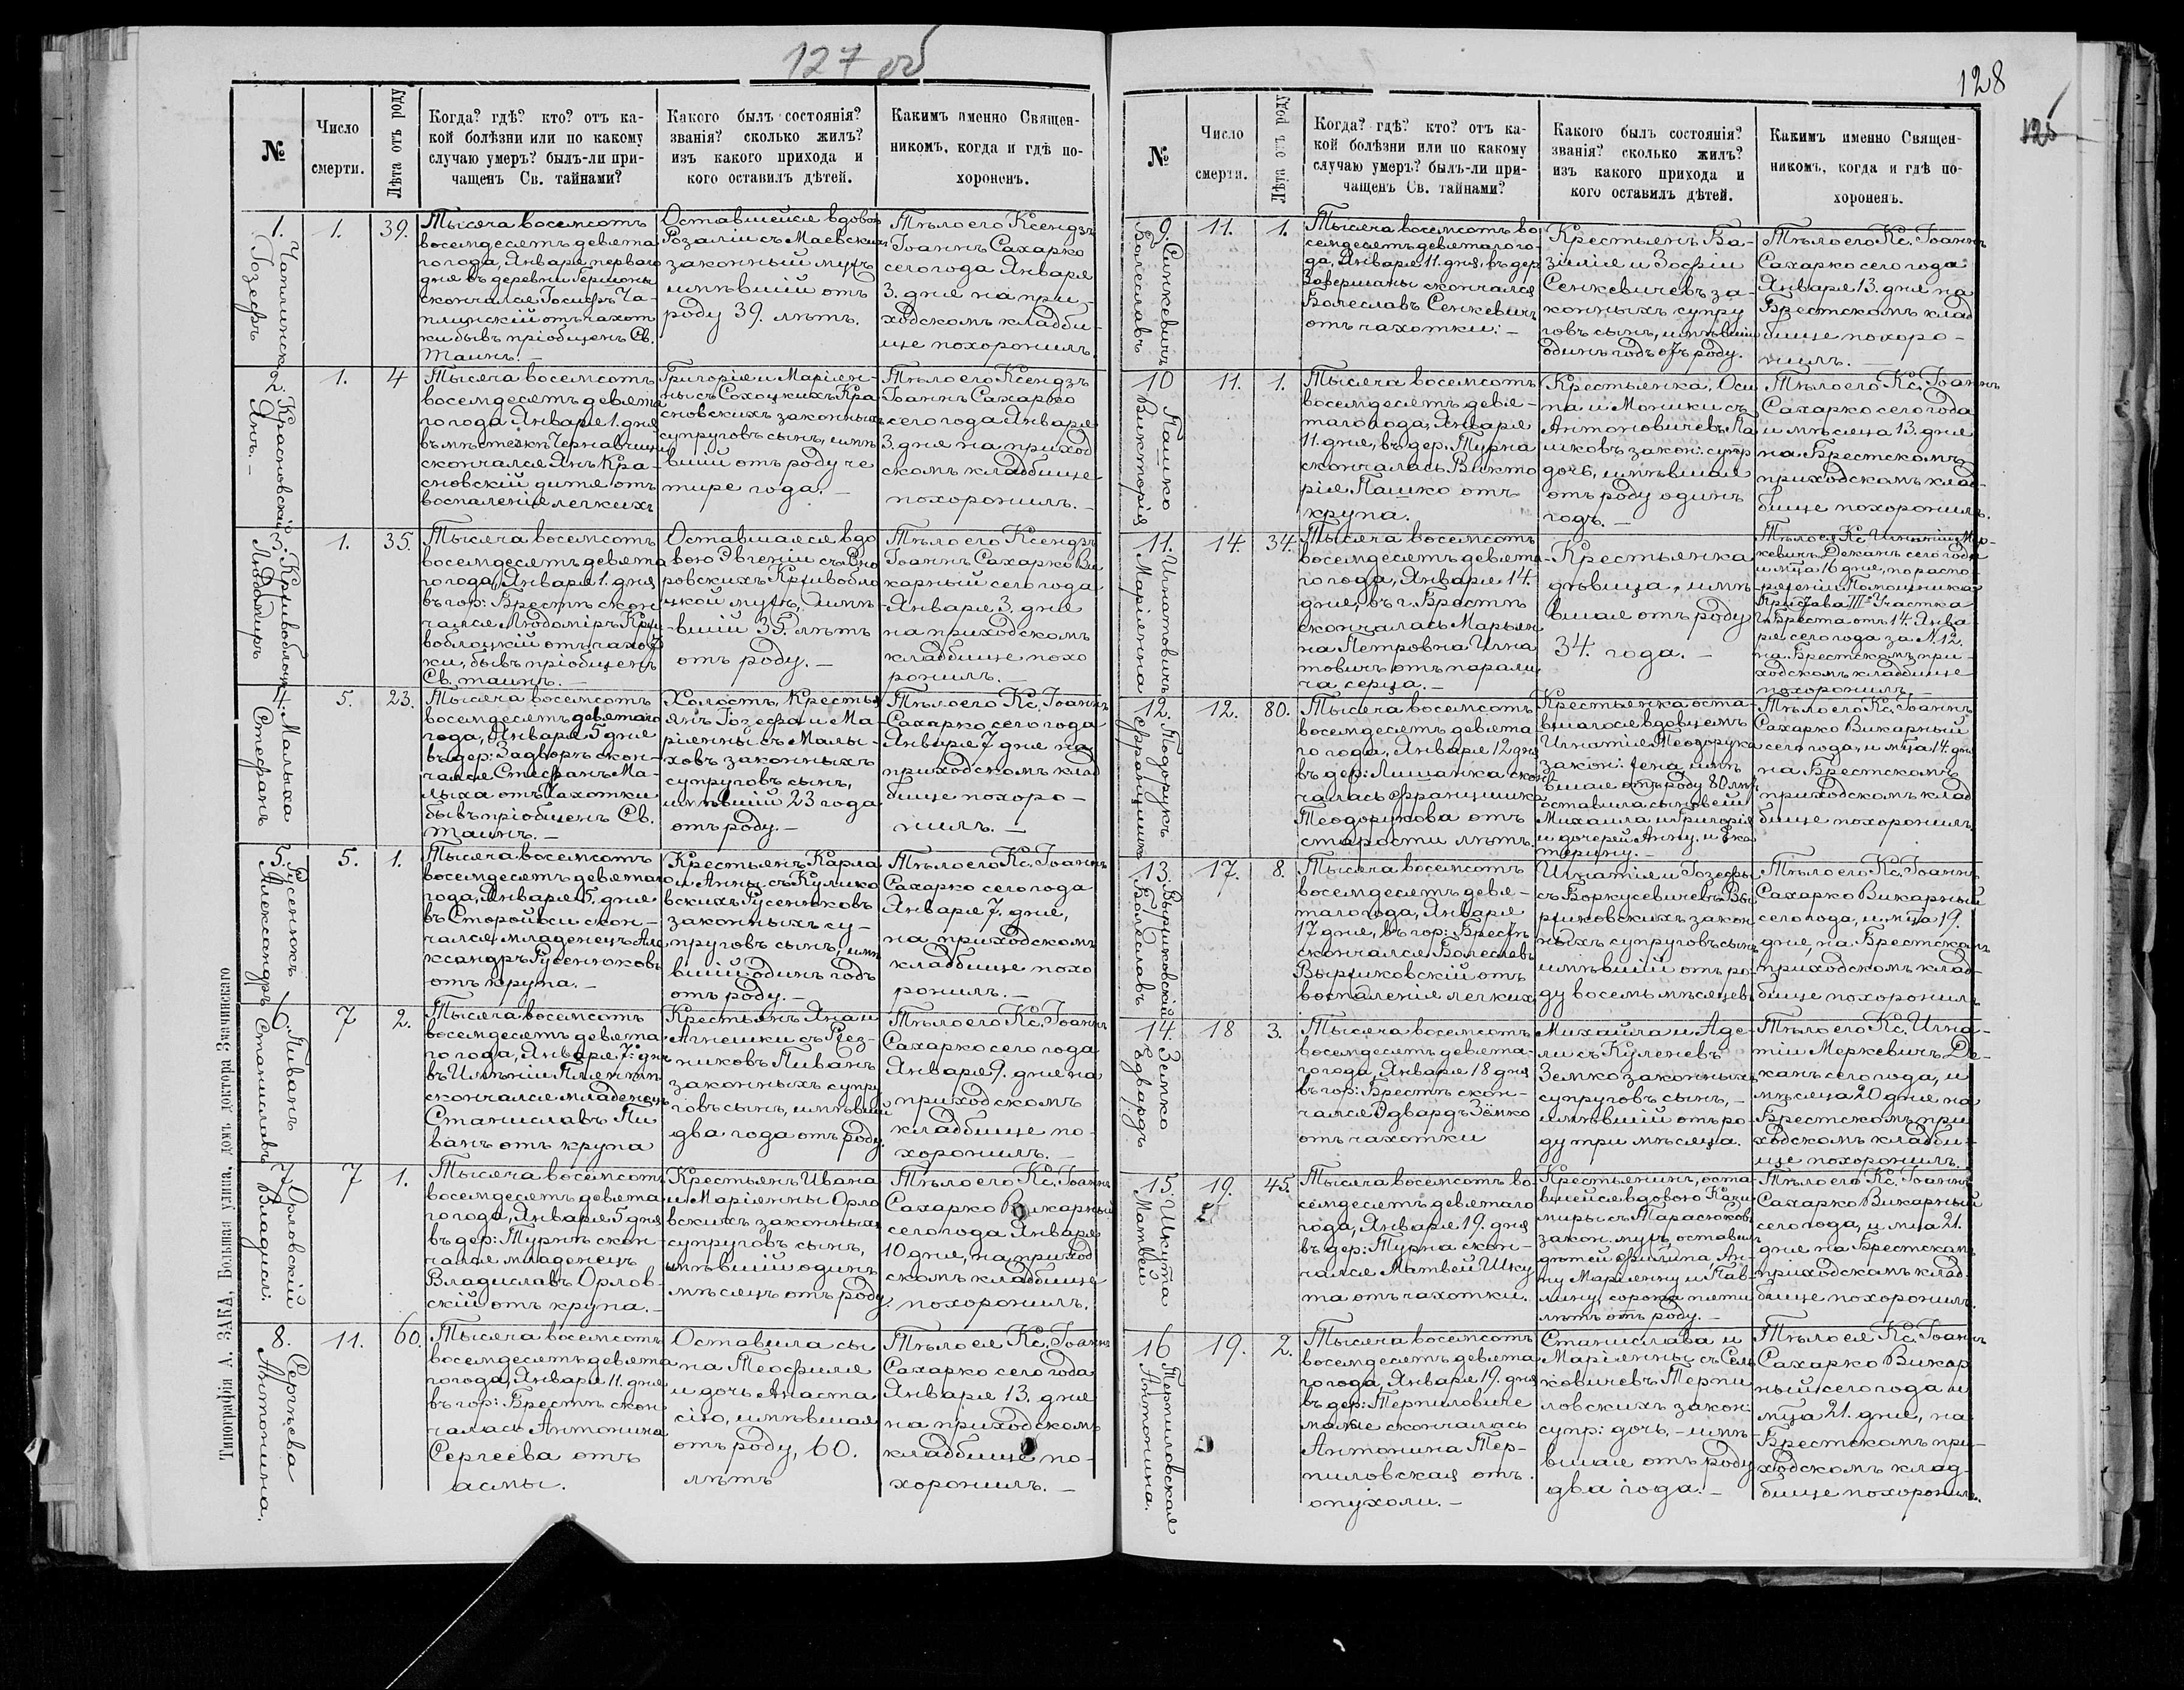 127 об
№
Число
смерти.
Лѣта отъ роду
Когда? гдѣ? кто? отъ ка-
кой болѣзни или по какому
случаю умеръ? былъ-ли при-
чащенъ Св. тайнами?
Какого былъ состоянія?
званія? сколько жилъ?
изъ какого прихода и
кого оставилъ дѣтей.
Какимъ именно Священ-
никомъ, когда и гдѣ по-
хороненъ.
1.
Чаплинскій
Іозефъ
1.
39.
Тысяча восемсотъ
восемдесятъ девята
го года, Января перваго
дня въ деревни Гершоны
скончался Іосифъ Ча-
плинскій отъ чахот
ки бывъ пріобщенъ Св.
Таинъ. –
Оставшейся вдовы
Розаліи съ Маевскихъ
законный мужъ
имѣвшій отъ
роду 39. лѣтъ.
Тѣло его Ксендзъ
Іоаннъ Сахарко
сего года Января
3. дня на при-
ходскомъ кладби-
ще похоронилъ.
2.
Красновскій
Янъ. –
1.
4
Тысяча восемсотъ
восемдесятъ девята
го года Января 1. дня
въ мѣстечкѣ Чернавчицы
скончался Янъ Кра-
сновскій дитя отъ
воспаленіе легкихъ
Григорія и Маріян-
ны съ Сохоцкихъ Кра
сновскихъ законныхъ
супруговъ сынъ, имѣ
вшій отъ роду че
тире года. –
Тѣло его Ксендзъ
Іоаннъ Сахарко
сего года Января
3. дня на приход
скомъ кладбище
похоронилъ. –
3.
Кривоблоцкій
Людомиръ
1.
35.
Тысяча восемсотъ
восемдесятъ девята
го года, Января 1. дня
въ гор: Брестѣ скон
чался Людомиръ Кри
воблоцкій отъ чахот
ки, бывъ пріобщенъ
Св. таинъ. –
Оставшаяся вдо
вою Эвгеніи съ
ровскихъ Кривобло
цкой мужъ, имѣ
-вшій 35. лѣтъ
отъ роду. –
Тѣло его Ксендзъ
Іоаннъ Сахарко Ви
карный сего года
Января 3. дня
на приходскомъ
кладбище похо
ронилъ. –
4.
Малыха
Стефанъ
5.
23.
Тысяча восемсотъ
восемдесятъ девятаго
года, Января 5 дня
въ дер: Задворъ скон-
чался Стефанъ Ма-
лыха отъ чахотки
бывъ пріобщенъ Св.
Таинъ. –
Холостъ, Крестья
янъ Іозефа и Ма-
ріянны съ Малы-
ховъ законныхъ
супруговъ сынъ,
имѣвшій 23 года
отъ роду. –
Тѣло его Кс. Іоаннъ
Сахарко сего года
Января 7 дня на
приходскомъ клад
бище похоро-
нилъ. –
5.
Русенюкъ
Александръ
5.
1.
Тысяча восемсотъ
восемдесятъ девятаго
года, Января 5. дня
въ Сторойки скон-
чался младенецъ Але
ксандръ Русенюковъ
отъ крупа. –
Крестьянъ Карла
и Анны съ Кулико
вскихъ Русенюковъ
законныхъ су-
пруговъ сынъ, имѣ
вшій одинъ годъ
отъ роду. –
Тѣло его Кс. Іоаннъ
Сахарко сего года
Января 7. дня,
на приходскомъ
кладбище похо
ронилъ. –
6.
Пиванъ
Станиславъ
7
2.
Тысяча восемсотъ
восемдесятъ девята
го года, Января 7: дня
въ Имѣніи
скончался младенецъ
Станиславъ Пи
ванъ отъ крупа
Крестьянъ Яна и
Агнешки съ Рез-
никовъ Пиванъ
законныхъ супру
говъ сынъ, имѣвшій
два года отъ роду.
Тѣло его Кс. Іоаннъ
Сахарко сего года
Января 9. дня на
приходскомъ
кладбище по-
хоронилъ. –
7.
Орловскій
Владисл:
7
1.
Тысяча восемсотъ
восемдесятъ девята
го года, Января 5 дня
въ дер: Турнѣ скон-
чался младенецъ
Владиславъ Орлов-
скій отъ крупа. –
Крестьянъ Ивана
и Маріянны Орло
вскихъ законныхъ
супруговъ сынъ,
имѣвшій одинъ
мѣсяцъ отъ роду.
Тѣло его Кс. Іоаннъ
Сахарко Викарный
сего года Января
10 дня, на приход
скомъ кладбище
похоронилъ.
8.
Сергѣева
Антонина.
11.
60.
Тысяча восемсотъ
восемдесятъ девята
го года, Января 11. дня
въ гор: Брестѣ скон
чалась Антонина
Сергеева отъ
асмы.
Оставила сы
на Теофиля
и дочь Анаста
сію, имѣвшая
отъ роду, 60.
лѣтъ
Тѣло ея Кс. Іоаннъ
Сахарко сего года
Января 13. дня
на приходскомъ
кладбище по-
хоронилъ. –
Типографія А. ЗАКА, Большая улица, домъ доктора Значинскаго
128
№
Число
смерти.
Лѣта отъ роду
Когда? гдѣ? кто? отъ ка-
кой болѣзни или по какому
случаю умеръ? былъ-ли при-
чащенъ Св. тайнами?
Какого былъ состоянія?
званія? сколько жилъ?
изъ какого прихода и
кого оставилъ дѣтей.
Какимъ именно Священ-
никомъ, когда и гдѣ по-
хороненъ.
9.
Синкевичъ
Болеславъ
11.
1.
Тысяча восемсотъ во
семдесятъ девятаго го-
да, Января 11. дня, въ дер
Завершаны скончался
Болеславъ Сенкевичъ
отъ чахотки: –
Крестьянъ Ва-
зилія и Зофіи
Сенкевичевъ за-
конныхъ супру
говъ сынъ, имѣвшій
одинъ годъ отъ роду.
Тѣло его Кс. Іоаннъ
Сахарко сего года
Января 13. дня на
Брестскомъ клад
бище похоро-
нилъ. –
10
Пашко
Викторія
11.
1.
Тысяча восемсотъ
восемдесятъ девя-
таго года, Января
11. дня, въ дер. Турна
скончалась Викто
рія Пашко отъ
крупа.
Крестьянка, Оси
па и Моники съ
Антоновичевъ Па
шковъ закон: супр
дочь, имѣвшая
отъ роду одинъ
годъ. –
Тѣло его Кс. Іоаннъ
Сахарко сего года
и мѣсяца 13. дня
на Брестскомъ
приходскомъ клад-
бище похоронилъ.
11.
Игнатовичъ
Маріянна
14.
34.
Тысяча восемсотъ
восемдесятъ девята-
го года, Января 14
дня, въ г. Брестѣ
скончалась Марьян
на Петровна Игна
товичъ отъ парали
ча серца. –
Крестьянка
дѣвица, имѣ
вшая отъ роду
34. года. –
Тѣло ея Кс Игнатій Мер-
кевичъ Деканъ сего года
и мца 16 дня, по распо-
ряженіи Помощника
Пристава III Участка
г. Бреста отъ 14. Янва-
ря сего года за N. 12.
на Брестскомъ при-
ходскомъ кладбище
похоронилъ. –
12.
Тодорукъ
Францишка
12.
80.
Тысяча восемсотъ
восемдесятъ девята-
го года, Января 12 дня
въ дер: Лишанка скон
чалась Францишка
Теодорукова отъ
старости лѣтъ.
Крестьянка оста-
вшагося вдовцемъ
Игнатія Теодорука
закон: жена имѣ
вшая отъ роду 80 лѣтъ
оставила сыновей
Михаила и Григорія
и дочерей Анну и Ека
терину. –
Тѣло его Кс. Іоаннъ
Сахарко Викарный
сего года, и мца 14. дня
на Брестскомъ
приходскомъ клад
бище похоронилъ
13.
Вырчиковскій
Болеславъ
17.
8.
Тысяча восемсотъ
восемдесятъ девя-
таго года, Января
17 дня, въ гор: Брестѣ
скончался Болеславъ
Вырчиковскій отъ
воспаленія легкихъ
Игнатія и Іозефы
съ Боркусевичевъ Вы
рчиковскихъ закон
ныхъ супруговъ сынъ
имѣвшій отъ ро-
ду восемь мѣсяцевъ
Тѣло его Кс. Іоаннъ
Сахарко Викарный
сего года, и мца 19.
дня, на Брестскомъ
приходскомъ клад-
бище похоронилъ
14.
Земко
Едвардъ
18
3.
Тысяча восемсотъ
восемдесятъ девята-
го года, Января 18 дня
въ гор: Брестѣ скон-
чался Эдвардъ Земко
отъ чахотки
Михайла и Аде-
ли съ Куленевъ
Земко законныхъ
супруговъ сынъ, –
имѣвшій отъ ро-
ду три мѣсяца.
Тѣло его Кс. Игна-
тіи Меркевичъ Де-
канъ сего года, и
мѣсяца 20 дня на
Брестскомъ при
ходскомъ кладби-
ще похоронилъ.
15.
Шкута
Матвей
19.
45.
Тысяча восемсотъ во-
семдесятъ девятаго
года, Января 19. дня
въ дер: Турна скон-
чался Матвей Шку
та отъ чахотки.
Крестьянинъ, оста-
вшейся вдовою Кази
миры съ Тарасюковъ
закон. мужъ, оставилъ
дѣтей Филипа, Ан-
ну Маріянну и Пав-
лину, сорока пяти
лѣтъ отъ роду. –
Тѣло его Кс. Іоаннъ
Сахарко Викарный
сего года, и мца 21.
дня на Брестскомъ
приходскомъ клад-
бище похоронилъ.
16
Терпиловская
Антонина.
19.
2.
Тысяча восемсотъ
восемдесятъ девята
го года, Января 19. дня
въ дер: Терпиловиче
малые скончалась
Антонина Тер-
пиловская отъ
опухоли. –
Станислава и
Маріянны съ Сень
ковичевъ Терпи
ловскихъ закон:
супр: дочь, – имѣ-
вшая отъ роду
два года. –
Тѣло ея Кс. Іоаннъ
Сахарко Викар
ный сего года и
мца 21. дня, на
Брестскомъ при-
ходскомъ клад-
бище похоронилъ.